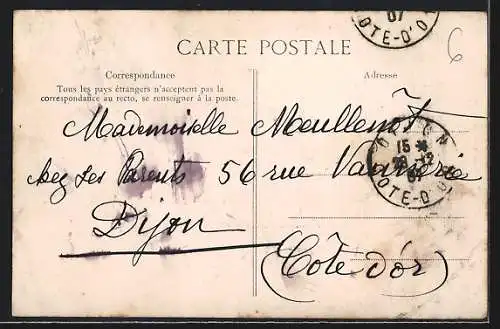 07
COTE-D'OR
6
CARTE POSTALE
Correspondance
Adresse
Tous les pays étrangers n'acceptent pas la
correspondance au recto, se renseigner à la poste.
Mademoiselle Meullenot
DIJON
15 *
28 -12
07
COTE-D'OR
chez Ses Parents 56 rue Vannerie
Dijon
(Côte d'or)